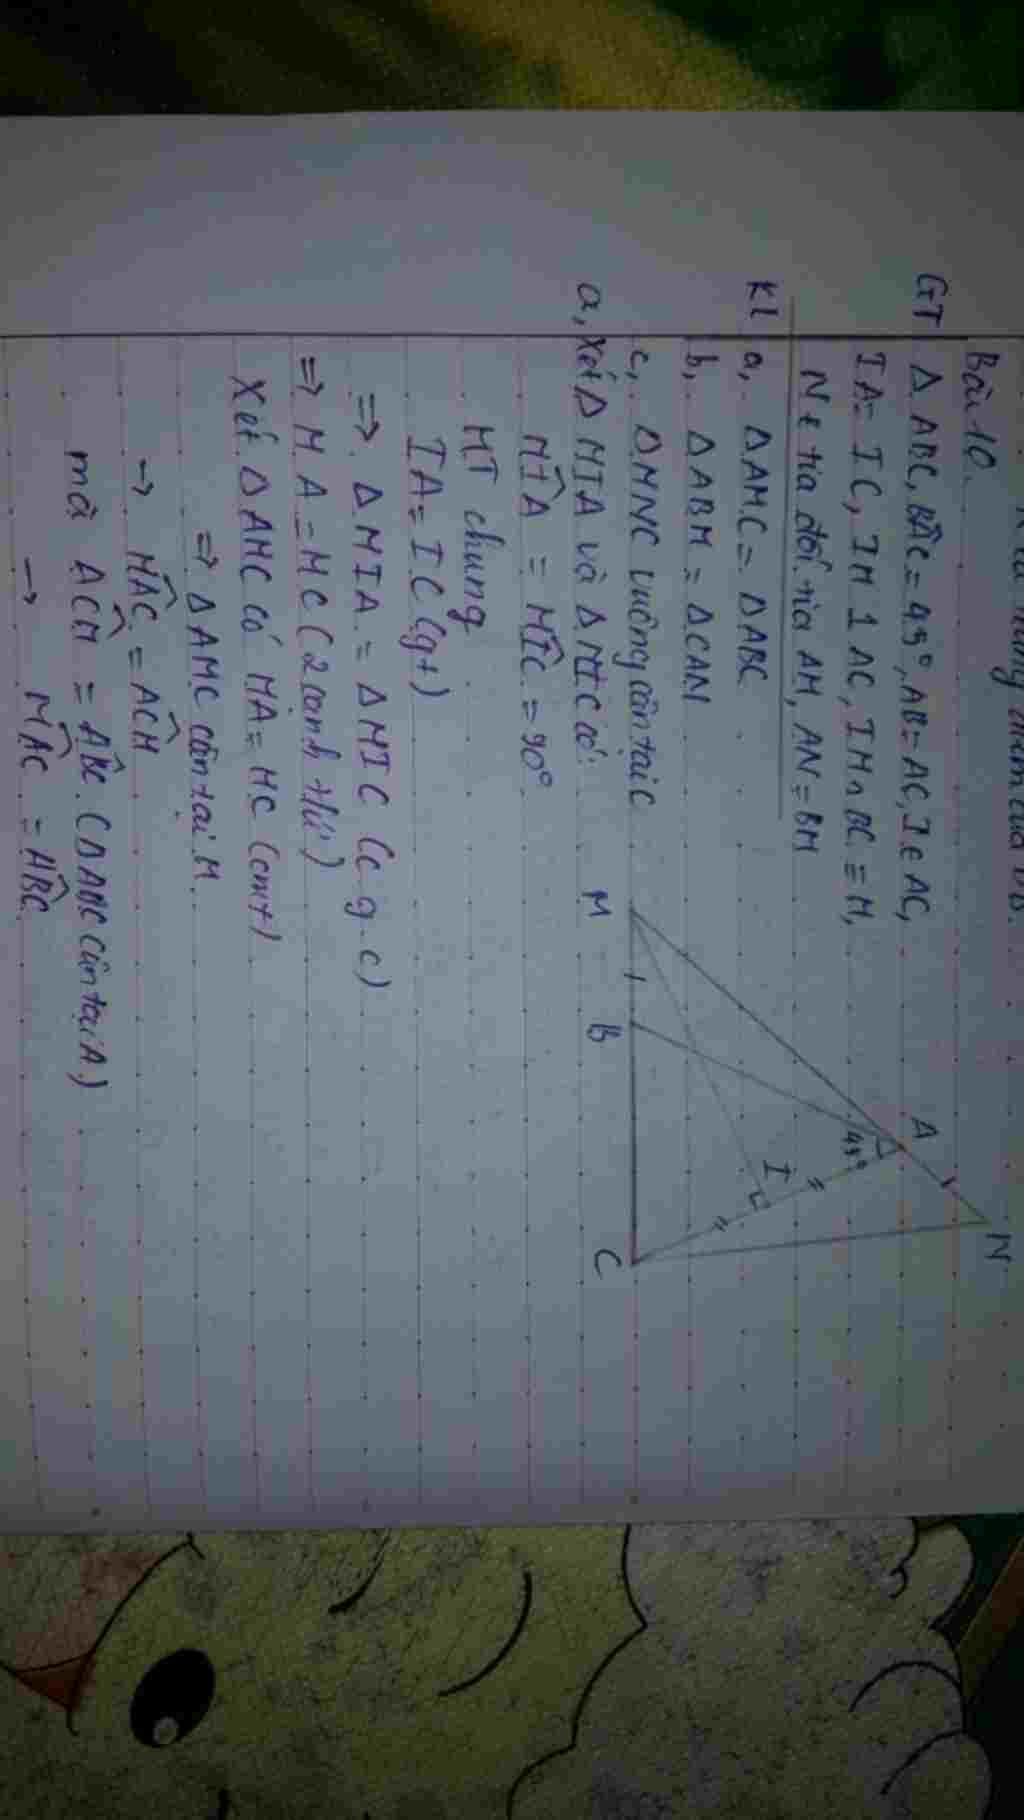 Bài 10.
GT Δ ABC, BÂC = 45°, AB = AC, I ∈ AC,
IA = IC, IM ⊥ AC, IM ∩ BC = M,
N ∈ tia đối tia AM, AN = BM
KL a, ΔAMC = ΔABC
b, ΔABM = ΔCAN
c, ΔMNC vuông cân tại C
a, Xét Δ MIA và Δ MIC có:
MÎA = MÎC = 90°
MI chung
IA = IC (gt)
=> Δ MIA = Δ MIC (c g.c)
=> MA = MC (2 cạnh t/ứ)
Xét Δ AMC có MA = MC (cmt)
=> Δ AMC cân tại M
-> MÂC = AĈM
mà AĈM = AB̂C (Δ ABC cân tại A)
-> MÂC = AB̂C
M B C A I N 45°